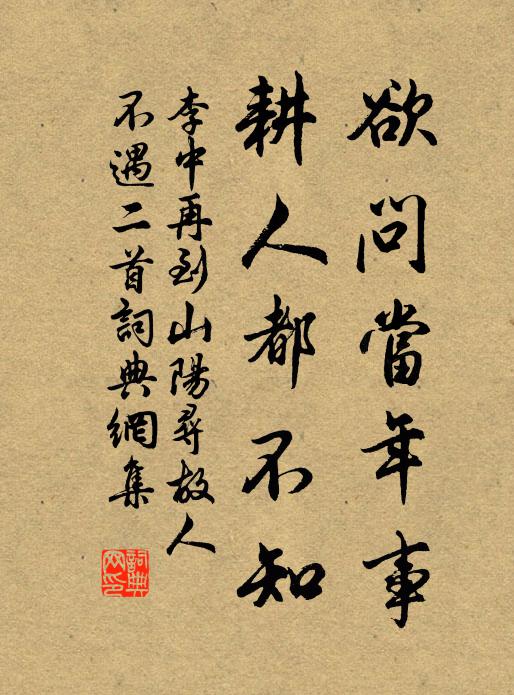 欲問當年事
耕人都不知
李中再到山陽尋故人
不遇二首詞典網集
詞典
网印